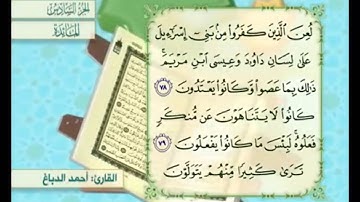 الجزء السادس
المائدة
لُعِنَ ٱلَّذِينَ كَفَرُوا۟ مِنۢ بَنِىٓ إِسْرَٰٓءِيلَ
عَلَىٰ لِسَانِ دَاوُۥدَ وَعِيسَى ٱبْنِ مَرْيَمَ ۚ
ذَٰلِكَ بِمَا عَصَوا۟ وَّكَانُوا۟ يَعْتَدُونَ ٧٨
كَانُوا۟ لَا يَتَنَاهَوْنَ عَن مُّنكَرٍ
فَعَلُوهُ ۚ لَبِئْسَ مَا كَانُوا۟ يَفْعَلُونَ ٧٩
تَرَىٰ كَثِيرًا مِّنْهُمْ يَتَوَلَّوْنَ
القارئ: أحمد الدباغ